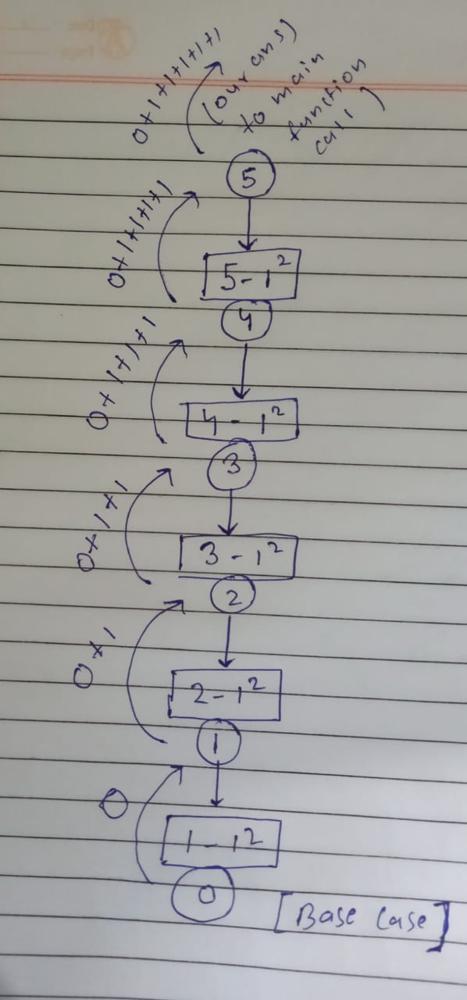 0+1+1+1+1+1
(our ans)
to main
function
call)
5
0+1+1+1+1
5-1²
4
0+1+1+1
4-1²
3
0+1+1
3-1²
2
0+1
2-1²
1
0
1-1²
0
[Base Case]